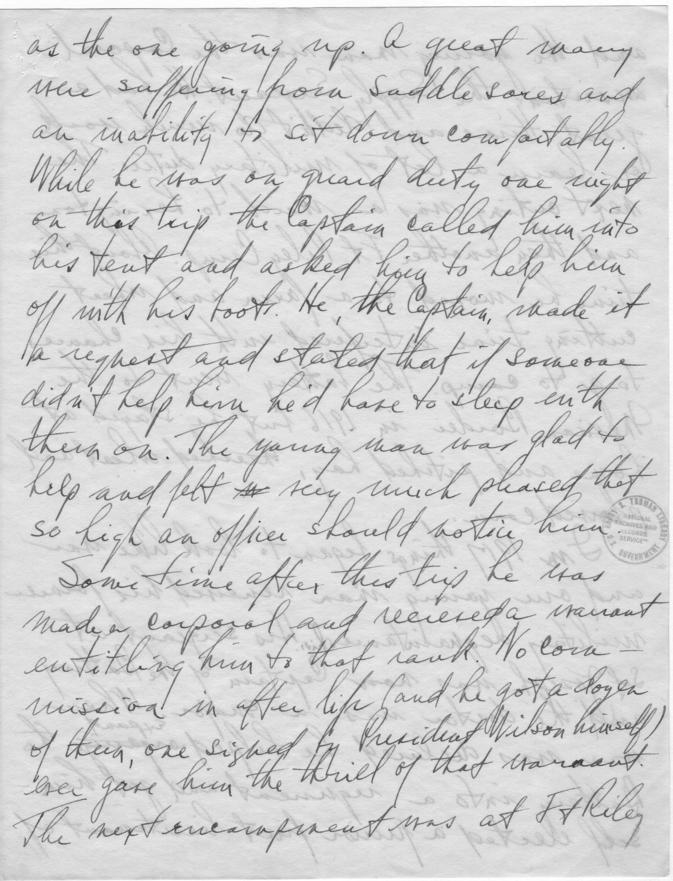 as the one going up. A great many
were suffering from saddle sores and
an inability to sit down comfortably.
While he was on guard duty one night
on this trip the Captain called him into
his tent and asked him to help him
off with his boots. He, the Captain, made it
a request and stated that if someone
didn't help him he'd have to sleep with
them on. The young man was glad to
help and felt very much pleased that
so high an officer should notice him.
Sometime after this trip he was
made a corporal and received a warrant
entitling him to that rank. No com-
mission in after life (and he got a dozen
of them, one signed by President Wilson himself)
ever gave him the thrill of that warrant.
The next encampment was at Ft Riley
HARRY S. TRUMAN LIBRARY
NATIONAL
ARCHIVES AND
RECORDS
SERVICE
U.S. GOVERNMENT